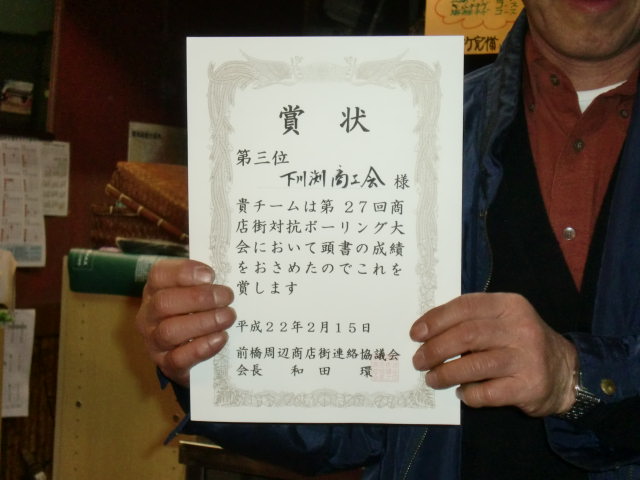 賞状
第三位
下川渕商工会 様
貴チームは第27回商
店街対抗ボーリング大
会において頭書の成績
をおさめたのでこれを
賞します
平成22年2月15日
前橋周辺商店街連絡協議会
会長 和田 環